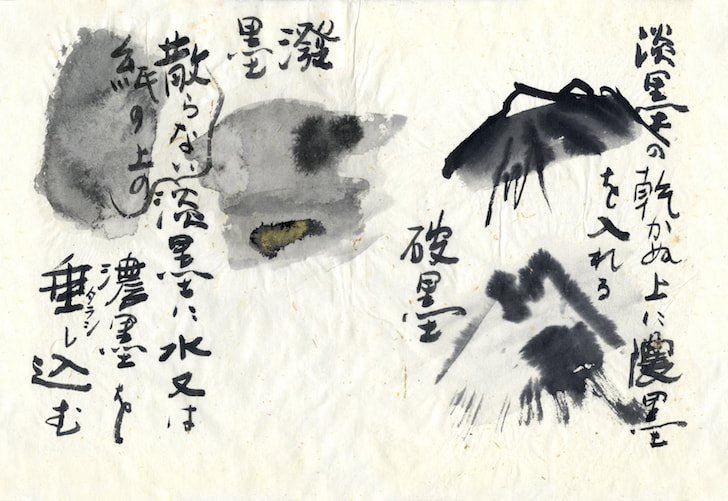 淡墨の乾かぬ上に濃墨
を入れる
破墨
潑墨
散らない淡墨に水又は
紙の上の
濃墨を
垂し込む
タラシ